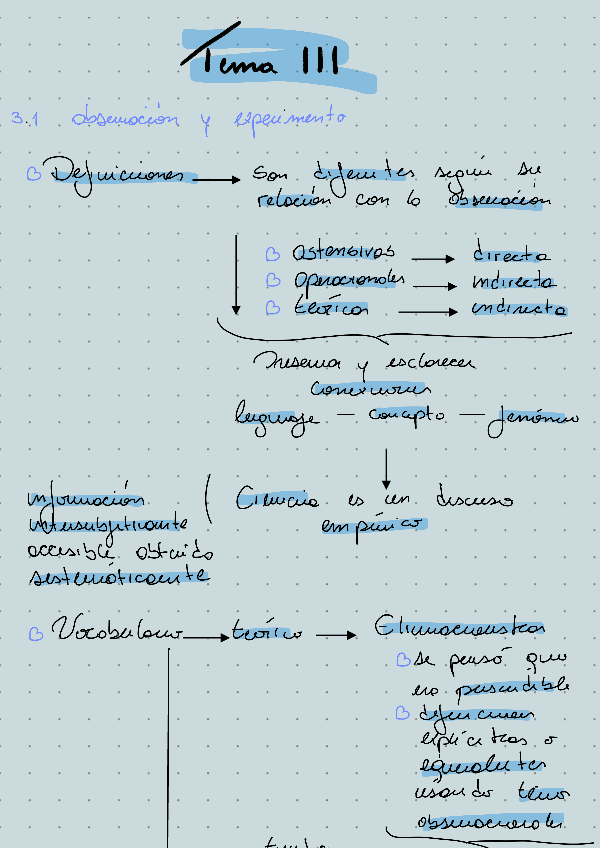 Tema III
3.1 observación y experimento
Definiciones → Son diferentes según su
relación con lo observación
ostensivas → directa
operacionales → indirecta
teórica → indirecta
Preserva y esclarecer
conexiones
lenguaje — concepto — fenómeno
información
intersubjetivamente
accesible obtenido
sistemáticamente
Ciencia es un discurso
empírico
Vocabulario → teórico →
Se pensó que
era prescindible
definiciones
explícitas o
equivalentes
usando térms
observacionales